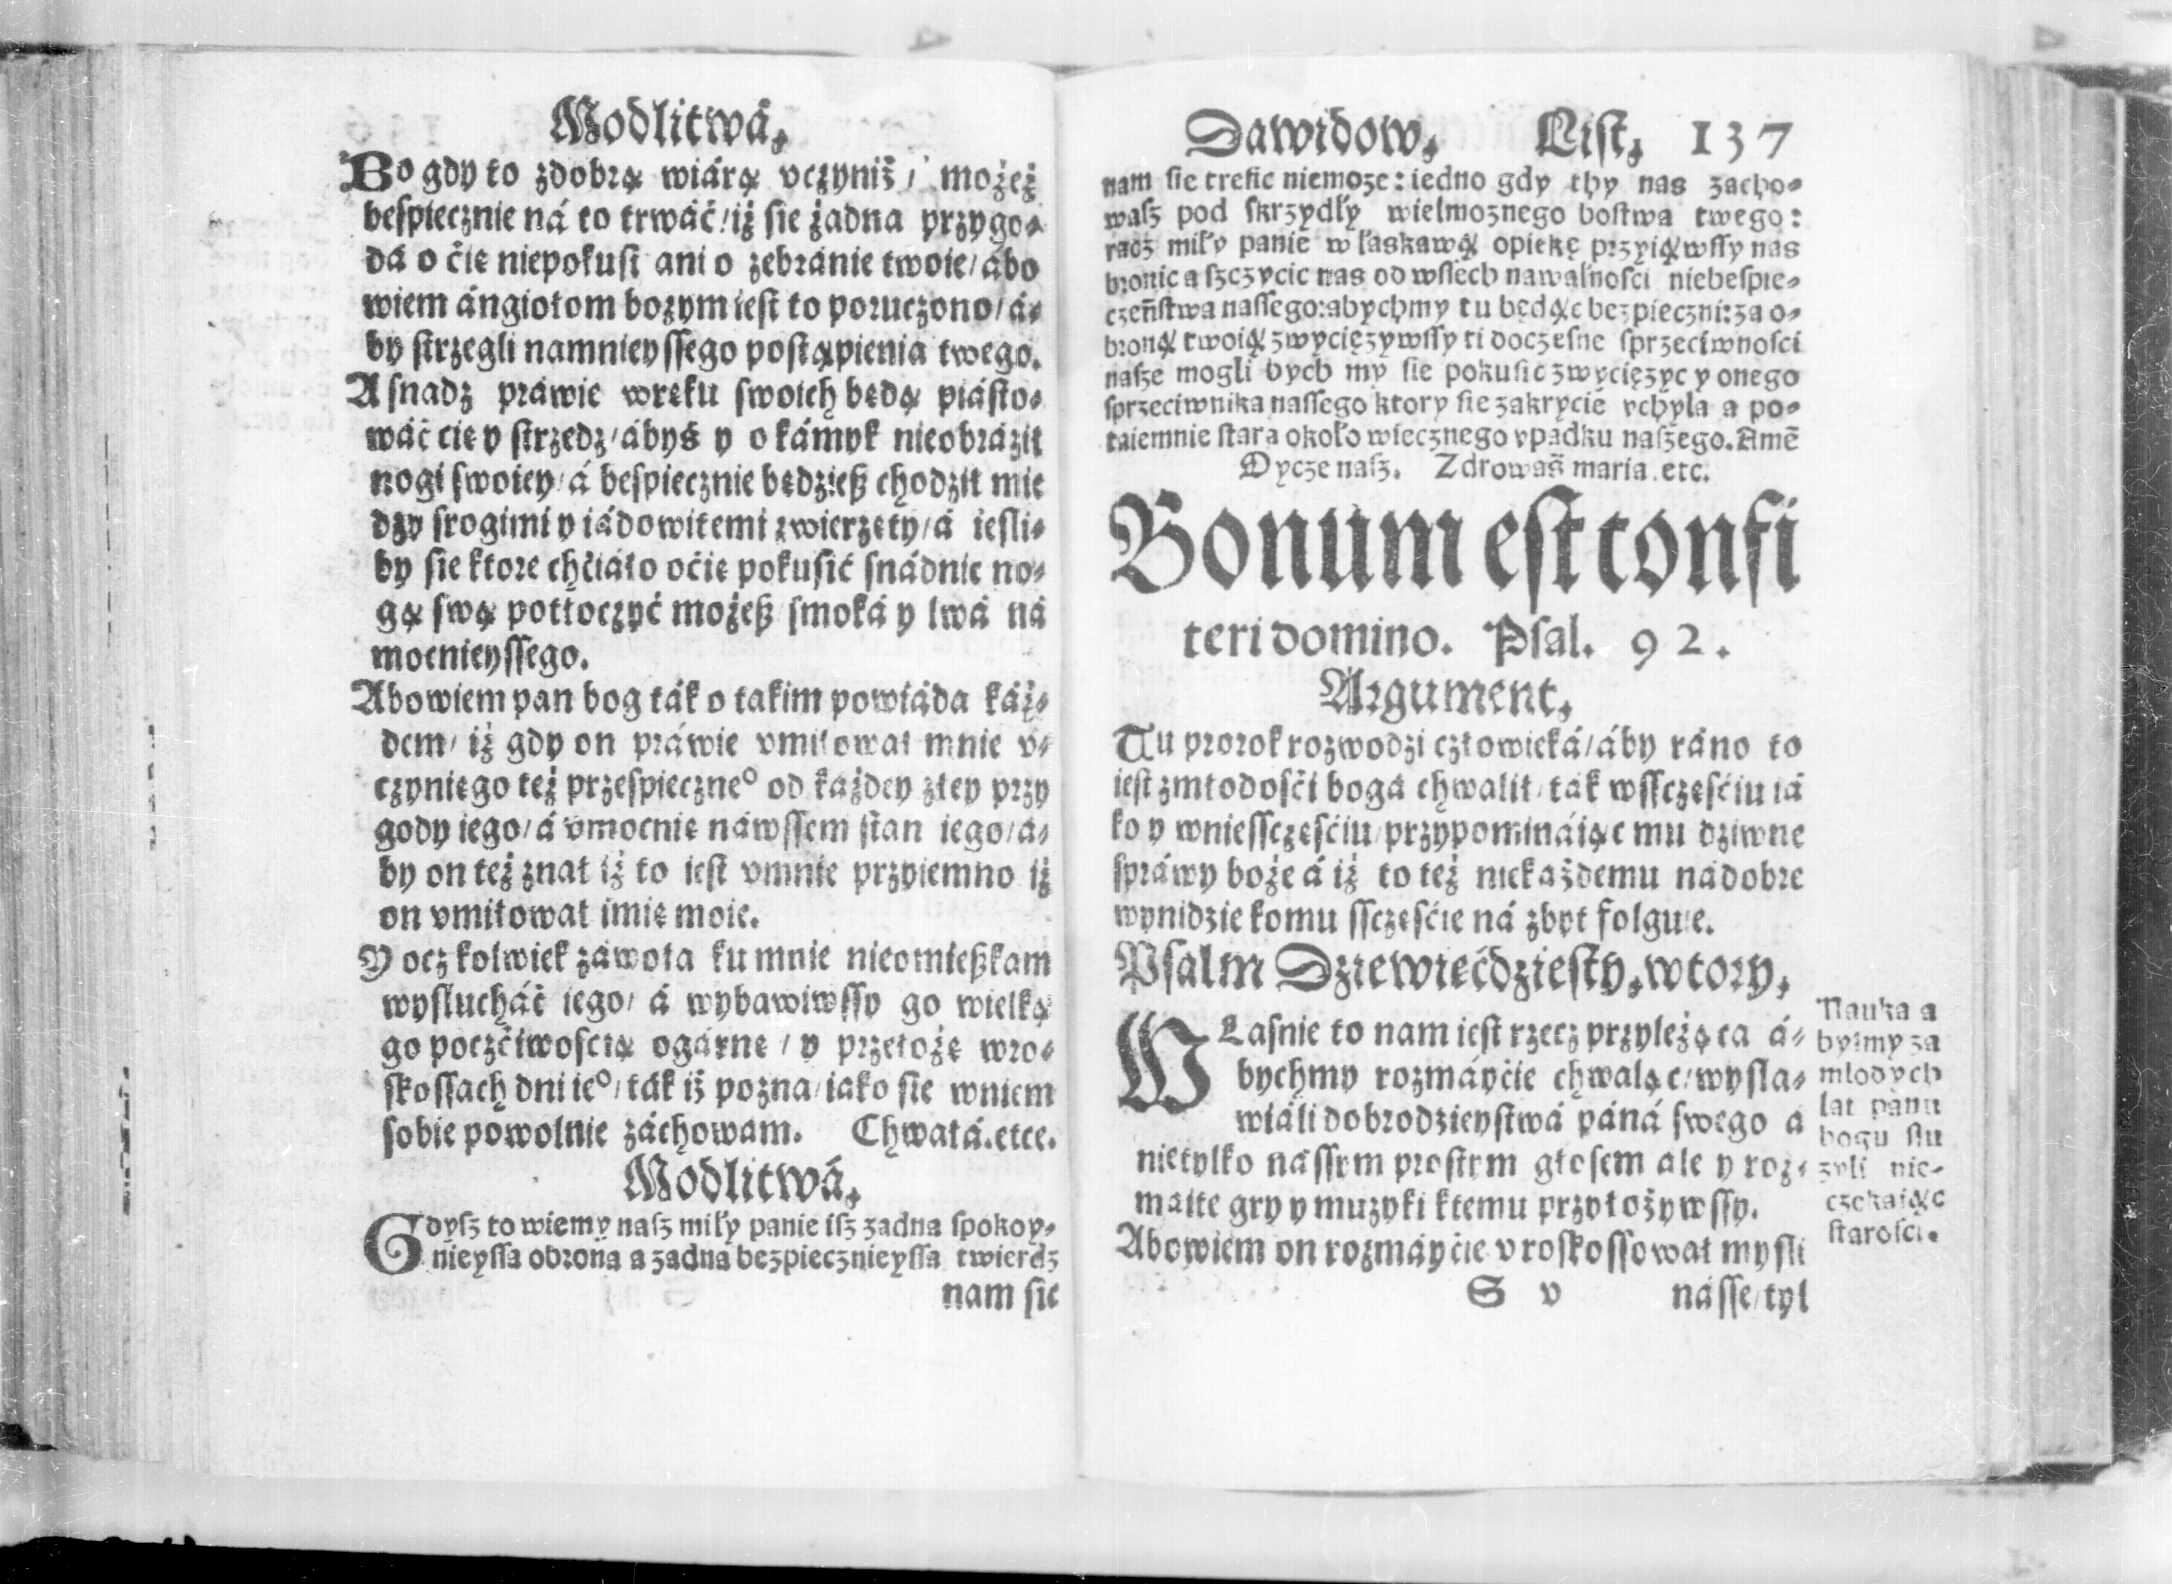 Modlitwá,
Bo gdy to zdobrą wiárą vczynisz / możeż
bespiecznie ná to trwáć / iż sie żadna przygo-
dá o ćię niepokusi ani o zebránie twoie / ábo
wiem ángiołom bozym iest to poruczono / á-
by strzegli namnieyssego postąpienia twego.
A snadz práwie wręku swoich będą piásto-
wáć cię y strzedz / ábyś y o kámyk nieobráził
nogi swoiey / á bespiecznie będzieß chodził mie
dzy srogimi y iádowitemi zwierzęty / á iesli-
by sie ktore chćiáło oćię pokusić snádnie no-
gą swą potłoczyć możeß smoká y lwá ná
mocnieyssego.
Abowiem pan bog ták o takim powiáda káż-
dem / iż gdy on práwie vmiłował mnie v-
czyniego też przespieczneº od każdey złey przy
gody iego / á vmocnię náwssem stan iego / á-
by on też znał iż to iest vmnie przyiemno iż
on vmiłował imię moie.
Y ocz kolwiek záwoła ku mnie nieomießkam
wysłucháć iego / á wybawiwssy go wielką
go poczćiwoscią ogárnę / y przełożę wro-
skossach dni ieº / ták iż pozna / iako sie wniem
sobie powolnie záchowam. Chwałá.etce.
Modlitwá,
Gdysz to wiemy nasz miły panie isz zadna spokoy-
nieyssa obrona a zadna bezpiecznieyssa twierdz
nam sie
Dawidow, List, 137
nam sie trefic niemoze: iedno gdy thy nas zacho-
wasz pod skrzydły wielmoznego bostwa twego:
racz miły panie w łaskawą opiekę przyiąwssy nas
bronic a szczycic nas od wsiech nawalnosci niebespie-
czeństwa nassego: abychmy tu będąc bezpieczni: za o-
broną twoią zwyciężywssy ti doczesne sprzeciwnosci
nasze mogli bych my sie pokusic zwyciężyc y onego
sprzeciwnika nassego ktory sie zakrycie vchyla a po-
taiemnie stara około wiecznego vpadku naszego. Amē
Oycze nasz. Zdrowaś maria.etc.
Bonum est confi
teri domino. Psal. 92.
Argument,
Tu prorok rozwodzi człowieká / áby ráno to
iest zmłodosći bogá chwalił / ták wssczęsćiu iá
ko y wniessczęsćiu / przypomináiąc mu dziwne
spráwy boże á iż to też niekażdemu nádobre
wynidzie komu ssczęsćie ná zbyt folguie.
Psalm Dziewięćdziesty, wtory,
WLasnie to nam iest rzecz przyleżąca á-
bychmy rozmáyćie chwaląc / wysła-
wiáli dobrodzieystwá páná swego a
nietylko nássym prostym głosem ale y roz-
maite gry y muzyki ktemu przyłożywssy.
Abowiem on rozmáyćie vroskossował mysli
S v násse / tyl
Nauka a
bysmy za
mlodych
lat panu
bogu słu
zyli nie-
czekaiąc
starosci.